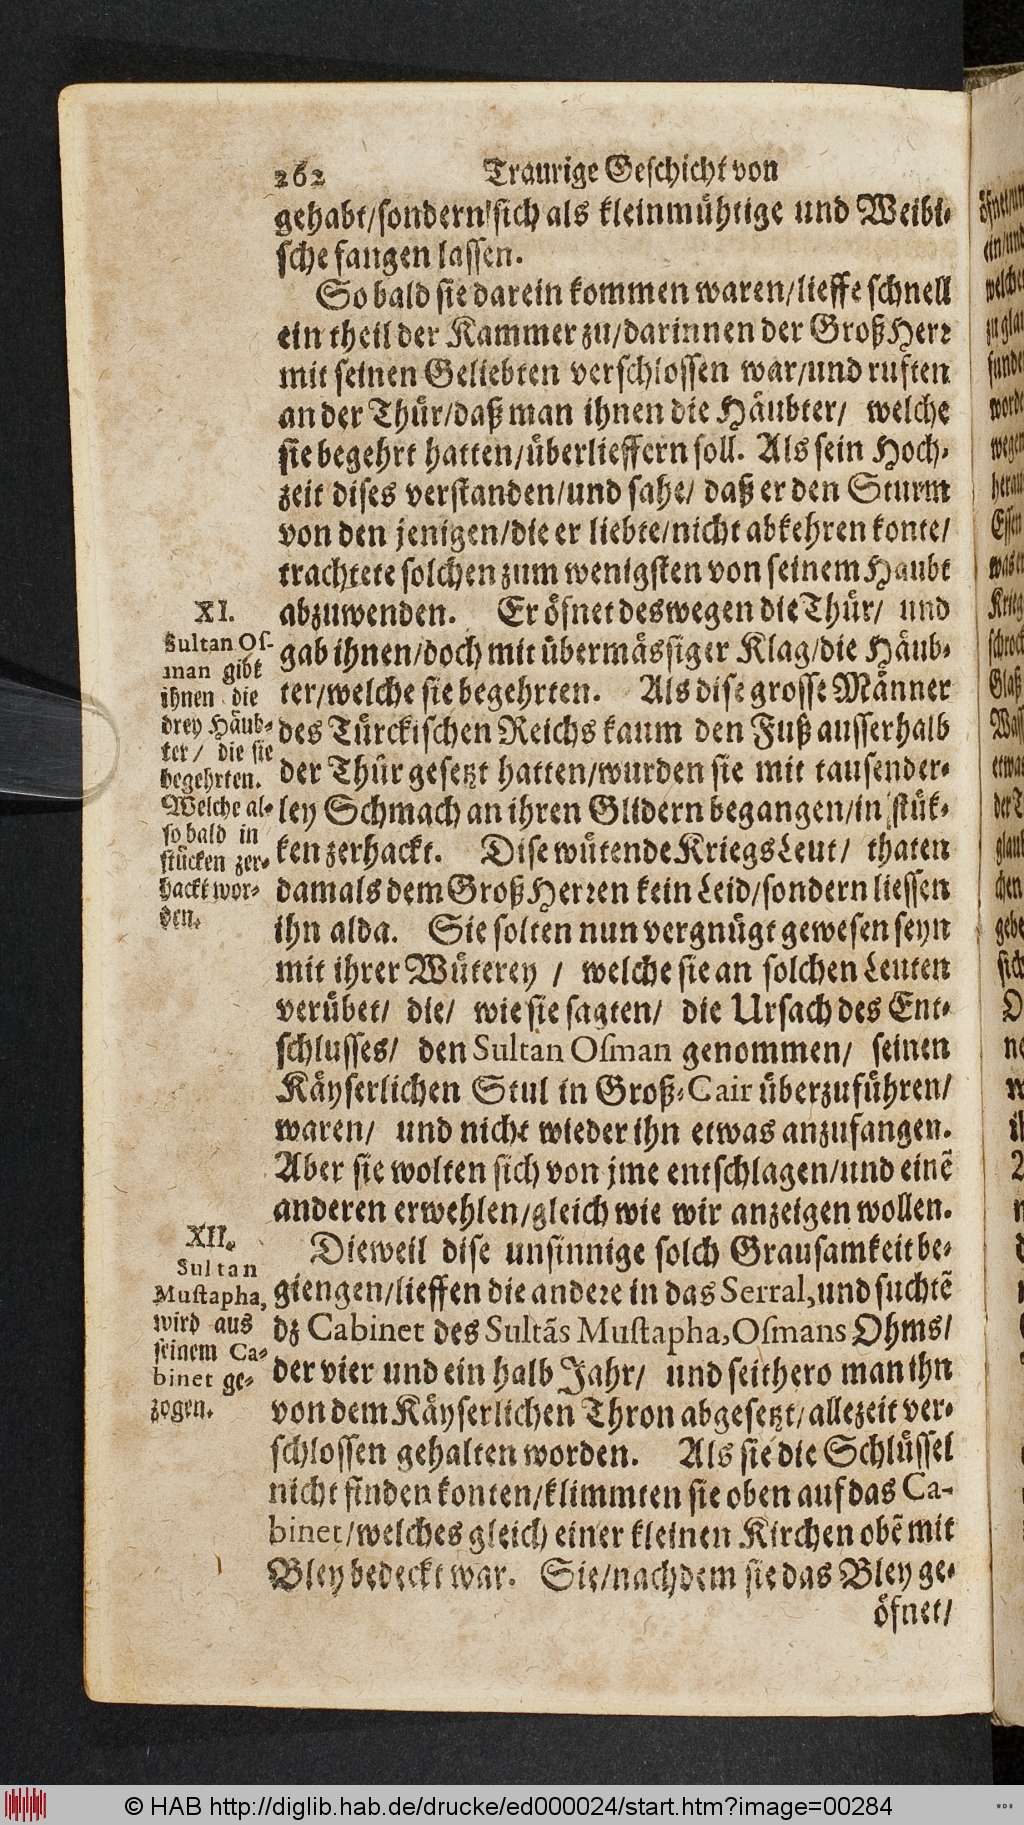 262 Traurige Geschicht von
gehabt/sondern sich als kleinmühtige und Weibi-
sche fangen lassen.
So bald sie darein kommen waren/lieffe schnell
ein theil der Kammer zu/darinnen der Groß Herr
mit seinen Geliebten verschlossen war/und ruften
an der Thür/daß man ihnen die Häubter/ welche
sie begehrt hatten/überlieffern soll. Als sein Hoch-
zeit dises verstanden/und sahe/ daß er den Sturm
von den jenigen/die er liebte/nicht abkehren konte/
trachtete solchen zum wenigsten von seinem Haubt
abzuwenden. Er öfnet deswegen die Thür/ und
gab ihnen/doch mit übermässiger Klag/die Häub-
ter/welche sie begehrten. Als dise grosse Männer
des Türckischen Reichs kaum den Fuß ausserhalb
der Thür gesetzt hatten/wurden sie mit tausender-
ley Schmach an ihren Glidern begangen/in stük-
ken zerhackt. Dise wütende Kriegs Leut/ thaten
damals dem Groß Herren kein Leid/sondern liessen
ihn alda. Sie solten nun vergnügt gewesen seyn
mit ihrer Wüterey / welche sie an solchen Leuten
verübet/ die/ wie sie sagten/ die Ursach des Ent-
schlusses/ den Sultan Osman genommen/ seinen
Käyserlichen Stul in Groß-Cair überzuführen/
waren/ und nicht wieder ihn etwas anzufangen.
Aber sie wolten sich von jme entschlagen/und einē
anderen erwehlen/gleich wie wir anzeigen wollen.
Dieweil dise unsinnige solch Grausamkeit be-
giengen/lieffen die andere in das Serral, und suchtē
dz Cabinet des Sultãs Mustapha, Osmans Ohms/
der vier und ein halb Jahr/ und seithero man ihn
von dem Käyserlichen Thron abgesetzt/allezeit ver-
schlossen gehalten worden. Als sie die Schlüssel
nicht finden konten/klimmten sie oben auf das Ca-
binet/welches gleich einer kleinen Kirchen obē mit
Bley bedeckt war. Sie/nachdem sie das Bley ge-
öfnet/
XI.
Sultan Os-
man gibt
ihnen die
drey Häub-
ter/ die sie
begehrten.
Welche al-
so bald in
stücken zer-
hackt wor-
den.
XII.
Sultan
Mustapha,
wird aus
seinem Ca-
binet ge-
zogen.
© HAB http://diglib.hab.de/drucke/ed000024/start.htm?image=00284